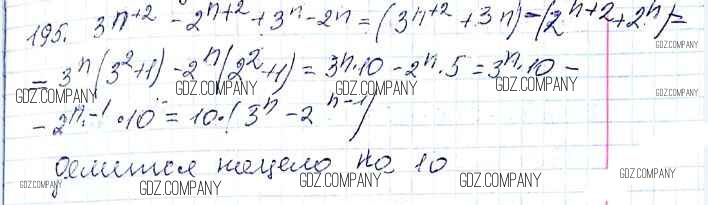 195. 3ⁿ⁺² - 2ⁿ⁺² + 3ⁿ - 2ⁿ = (3ⁿ⁺² + 3ⁿ) - (2ⁿ⁺² + 2ⁿ) =
= 3ⁿ(3² + 1) - 2ⁿ(2² + 1) = 3ⁿ · 10 - 2ⁿ · 5 = 3ⁿ · 10 -
- 2ⁿ⁻¹ · 10 = 10 · (3ⁿ - 2ⁿ⁻¹)
делится нацело на 10
GDZ.COMPANY
GDZ.COMPANY
GDZ.COMPANY
GDZ.COMPANY
GDZ.COMPANY
GDZ.COMPANY
GDZ.COMPANY
GDZ.COMPANY
GDZ.COMPANY
GDZ.COMPANY
GDZ.COMPANY
GDZ.COMPANY